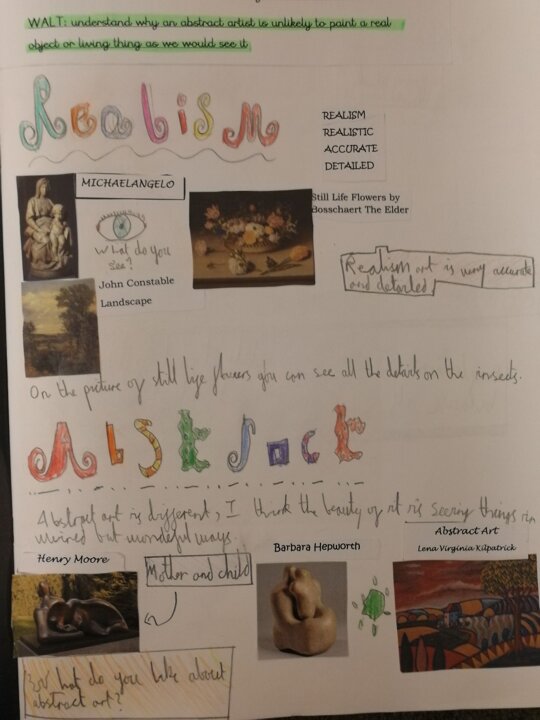 WALT: understand why an abstract artist is unlikely to paint a real
object or living thing as we would see it
Realism
REALISM
REALISTIC
ACCURATE
DETAILED
MICHAELANGELO
What do you
see?
Still Life Flowers by
Bosschaert The Elder
John Constable
Landscape
Realism art is very accurate
and detailed
On the picture of still life flowers you can see all the details on the insects.
Abstract
Abstract art is different, I think the beauty of it is seeing things in
weired but wonderful ways.
Henry Moore
Mother and child
Barbara Hepworth
Abstract Art
Lena Virginia Kilpatrick
What do you like about
abstract art?